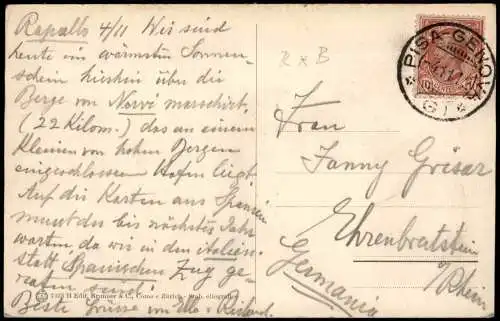 Rapallo 4/11 Wir sind
heute im wärmsten Sonnen-
schein hierhin über die
Berge von Nervi marschirt,
(22 Kilom.) das an einem
kleinen von hohen Bergen
eingeschlossenen Hafen liegt.
Auf die Karten aus Spanien
musst du bis nächstes Jahr
warten da wir in den italien.
statt Spanischen Zug ge-
raten sind!
Beste Grüsse von Ella u
7403 H Edit. Brunner & C., Como e Zürich - Stab. eliografico
R x B
PISA-GENOVA
Frau
Fanny Grisar
Ehrenbreitstein
a/Rhein
Germania